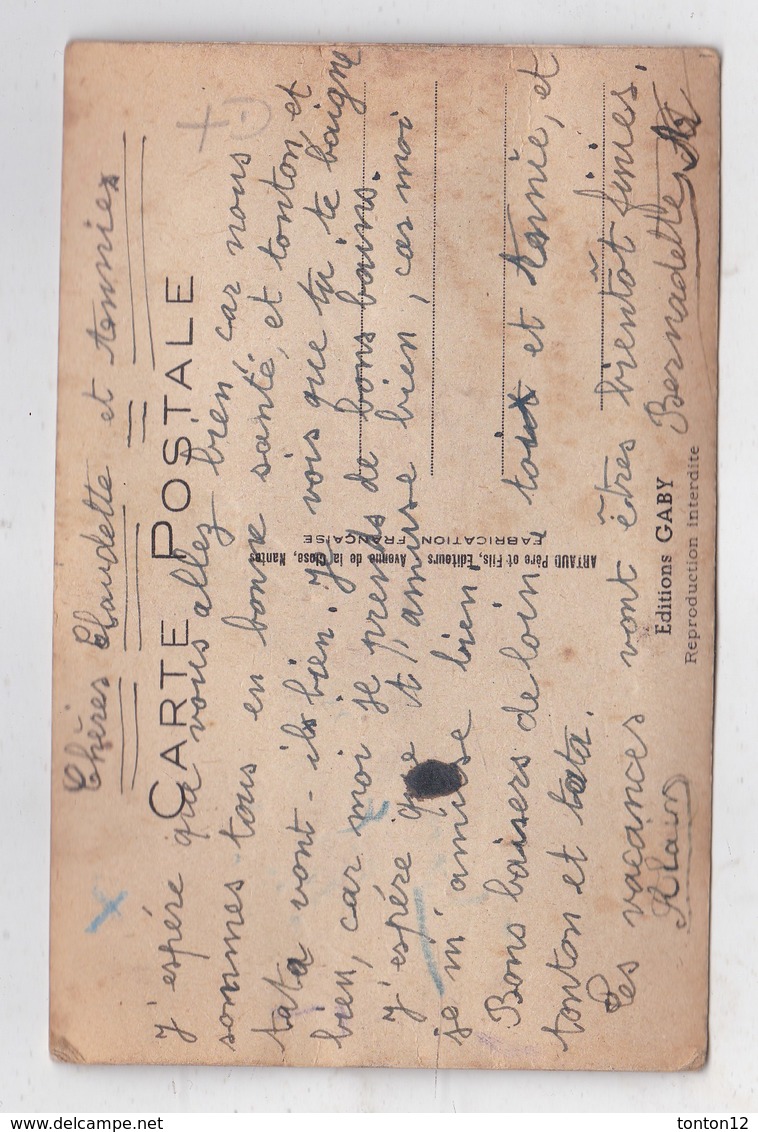 Chères Claudette et Annies
CARTE POSTALE
J'espére que vous allez bien car nous
sommes tous en bonne santé, et tonton, et
tata vont-ils bien. Je vois que tu te baigne
bien, car moi je prends de bons bains.
J'espére que t'amuse bien, car moi
je m'amuse bien.
Bons baisers de loin, à toux et Annie, et
tonton et tata.
Les vacances vont êtres bientôt finies.
Alain Bernadette
ARTAUD Père et Fils, Editeurs, Avenue de la Close, Nantes
FABRICATION FRANÇAISE
Editions GABY
Reproduction interdite
delcampe.net
tonton12